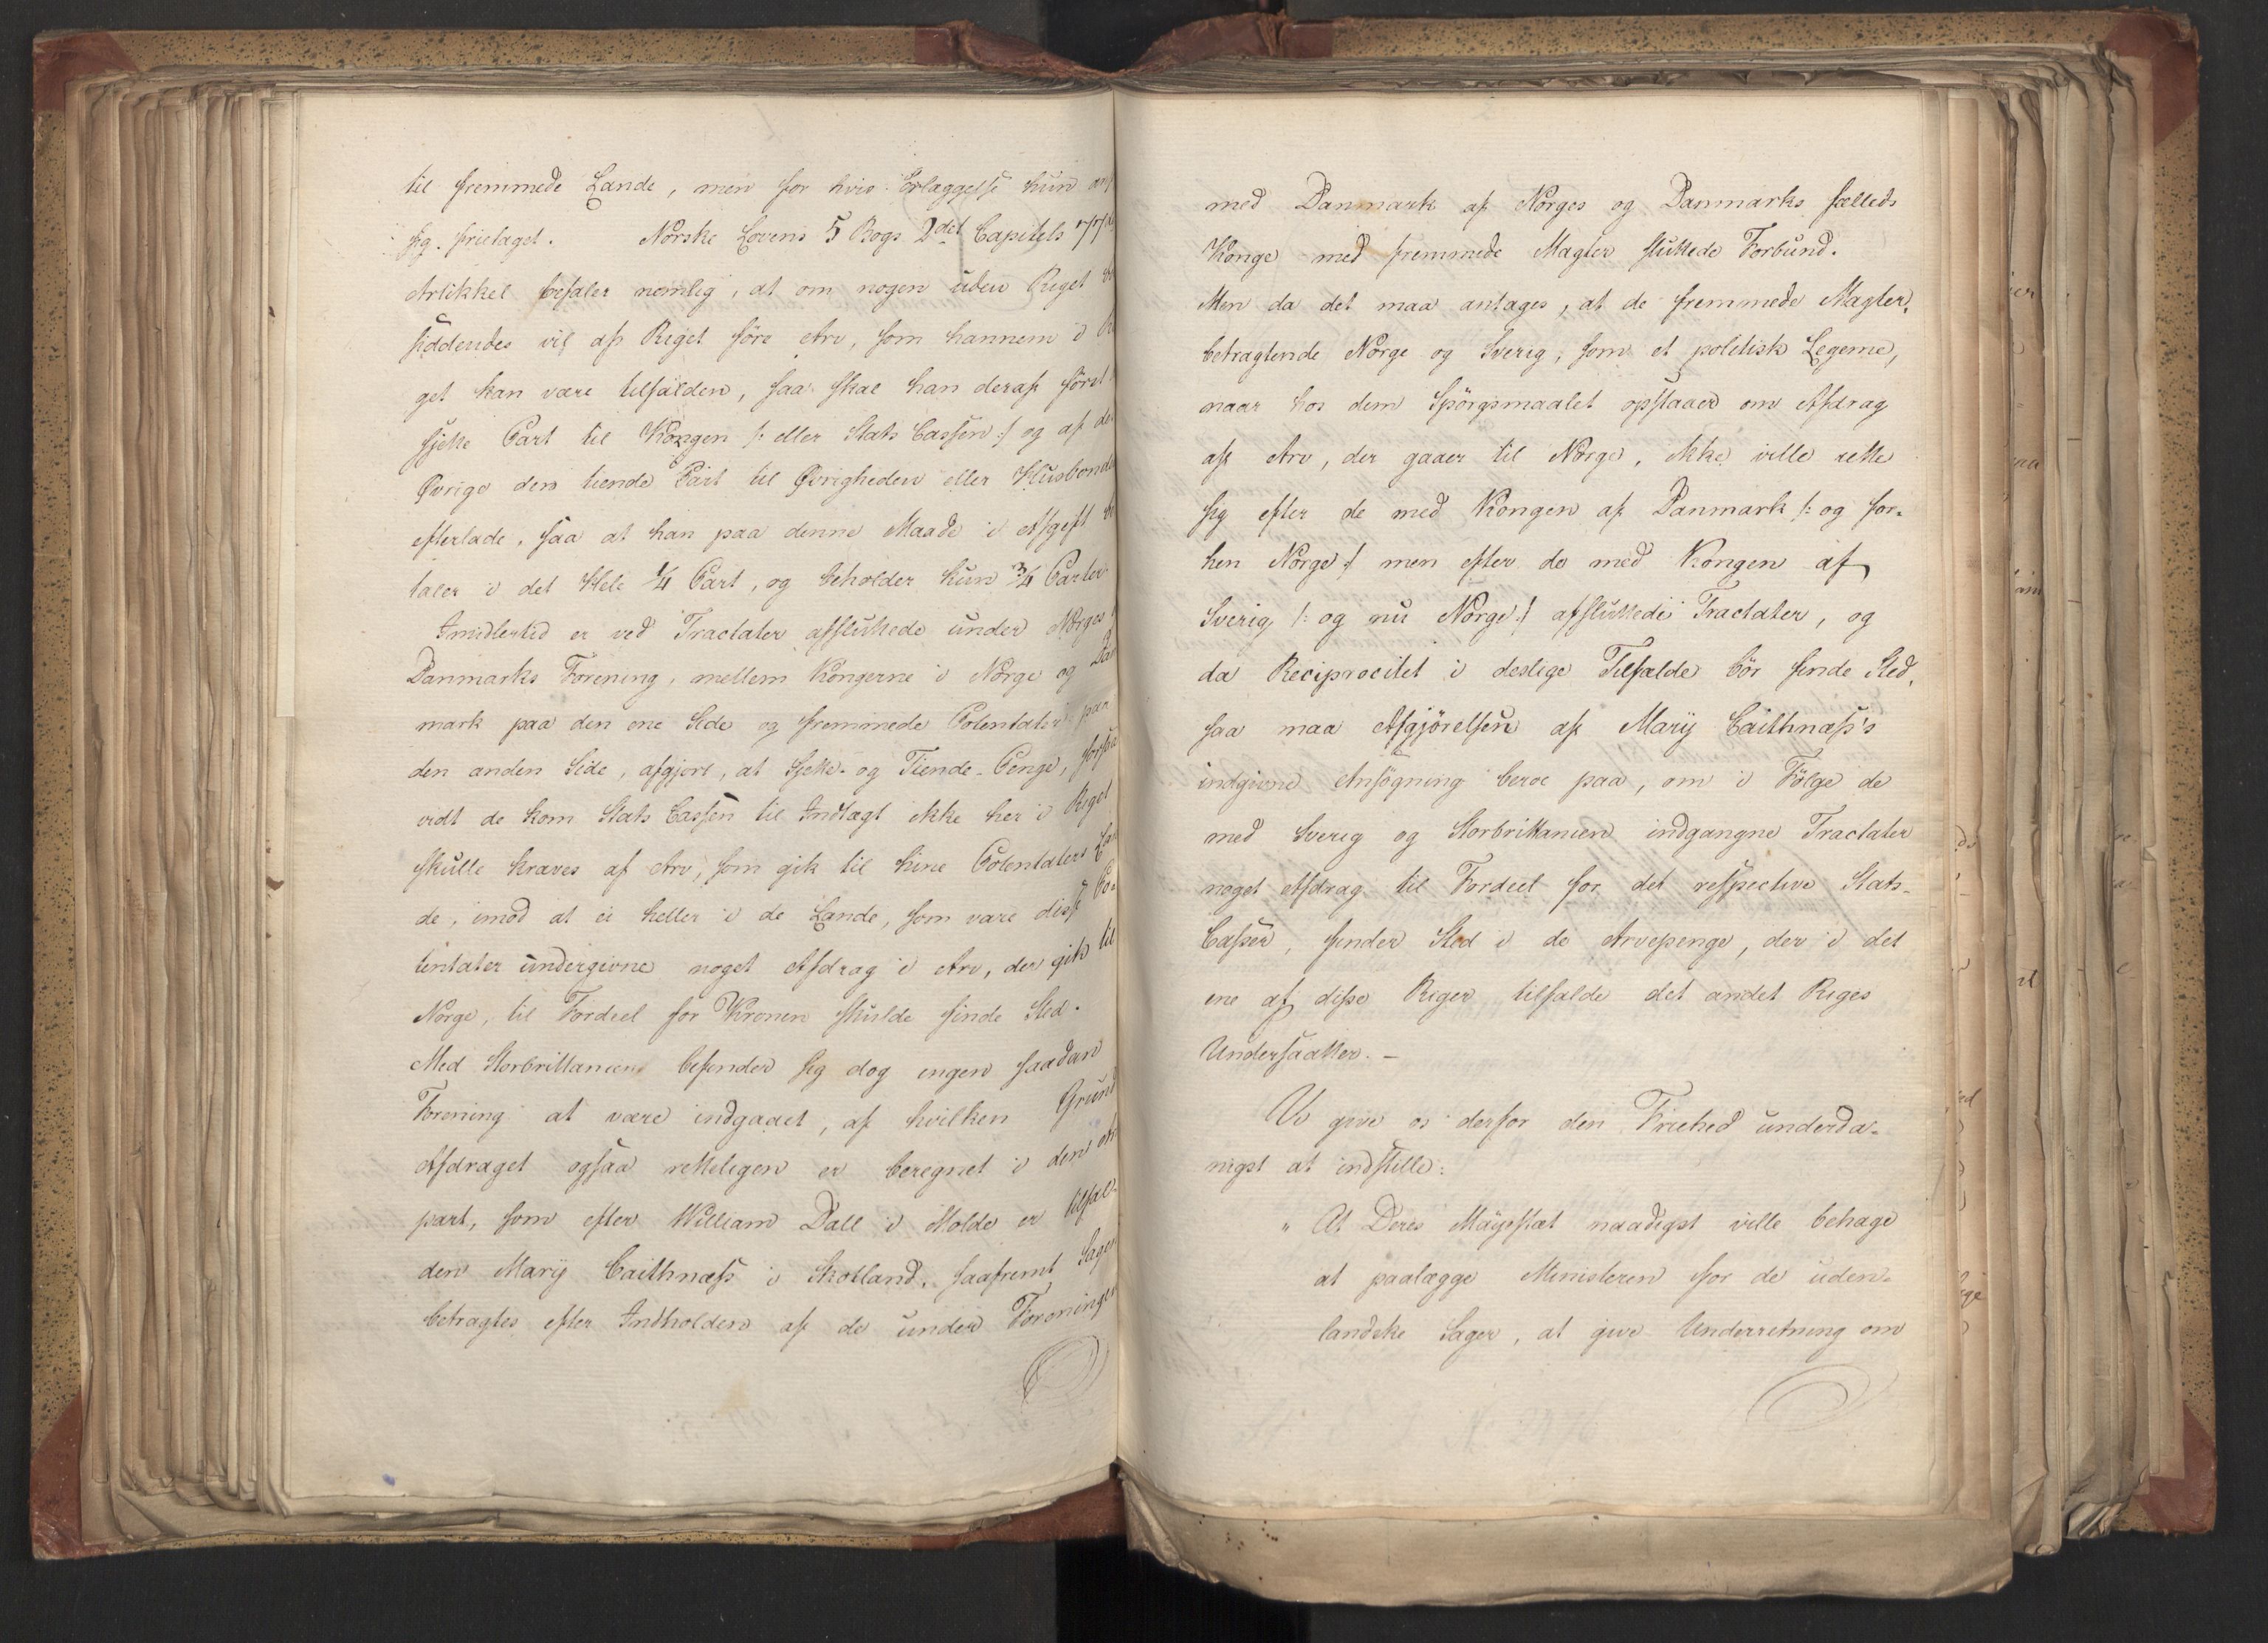 til fremmede Lande, men for hvis Erlæggelse hun
sig fritaget. Norske Lovens 5 Bogs 2det Capitels
Artikkel befaler nemlig, at om nogen uden Riget
siddendes vil af Riget före Arv, som hannem i
get kan være tilfalden, saa skal han deraf först
sjette Part til Kongen /: eller Stats Cassen :/ og af
Øvrige den tiende Part til Øvrigheden eller Husbonde
efterlade, saa at han paa denne Maade i Afgift
taler i det Hele 1/4 Part, og beholder kun 3/4 Parter
Imidlertid er ved Tractater afsluttede under Norges
Danmarks Forening, mellem Kongerne i Norge og Dan
mark paa den ene Side og fremmede Potentater paa
den anden Side, afgjort, at Sjette- og Tiende-Penge, forsaa
vidt de kom Stats Cassen til Indtægt ikke her i Riget
skulle kræves af Arv, som gik til hine Potentaters Lan
de, imod at ei heller i de Lande, som vare disse Po-
tentater undergivne noget Afdrag i Arv, der gik til
Norge, til Fordeel for Kronen skulde finde Sted.
Med Storbrittanien befinder sig dog ingen saadan
Forening at være indgaaet, af hvilken Grund
Afdraget ogsaa retteligen er beregnet i den
part, som efter William Dall i Molde er tilfal-
den Mary Caithness i Skotland, saafremt Sagen
betragtes efter Indholden af de under Foreningen
med Danmark af Norges og Danmarks fælleds
Konge med fremmede Magter sluttede Forbund.
Men da det maa antages, at de fremmede Magter,
betragtende Norge og Sverig, som et politisk Legeme,
naar hos dem Spörgsmaalet opstaaer om Afdrag
af Arv, der gaaer til Norge, ikke ville rette
sig efter de med Kongen af Danmark /: og for-
hen Norge :/ men efter de med Kongen af
Sverig /: og nu Norge :/ afsluttede Tractater, og
da Reciprocitet i deslige Tilfælde bör finde Sted,
saa maa Afgjörelsen af Mary Caithness's
indgivne Ansögning beroe paa, om i Fölge de
med Sverig og Storbrittanien indgangne Tractater
noget Afdrag til Fordeel for det respective Stats-
Casser, finder Sted i de Arvepenge, der i det
ene af disse Riger tilfalde det andet Riges
Undersaatter. -
Vi give os derfor den Friehed underda-
nigst at indstille:
" At Deres Majestæt naadigst ville behage
at paalægge Ministeren for de uden-
landske Sager, at give Underretning om